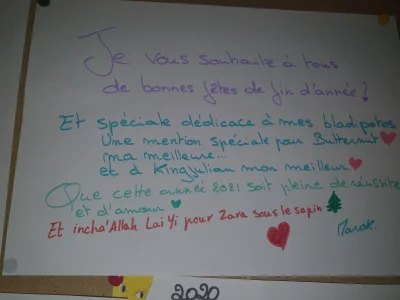 Je vous souhaite à tous
de bonnes fêtes de fin d'année !
Et spéciale dédicace à mes bladipotos
Une mention spéciale pour Butternut
ma meilleure...
et à Kingjulian mon meilleur
Que cette année 2021 soit pleine de réussite
et d'amour
Et incha'Allah Lai Yi pour Zara sous le sapin
2020